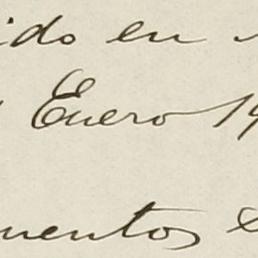 ido en
Enero 19
mentos